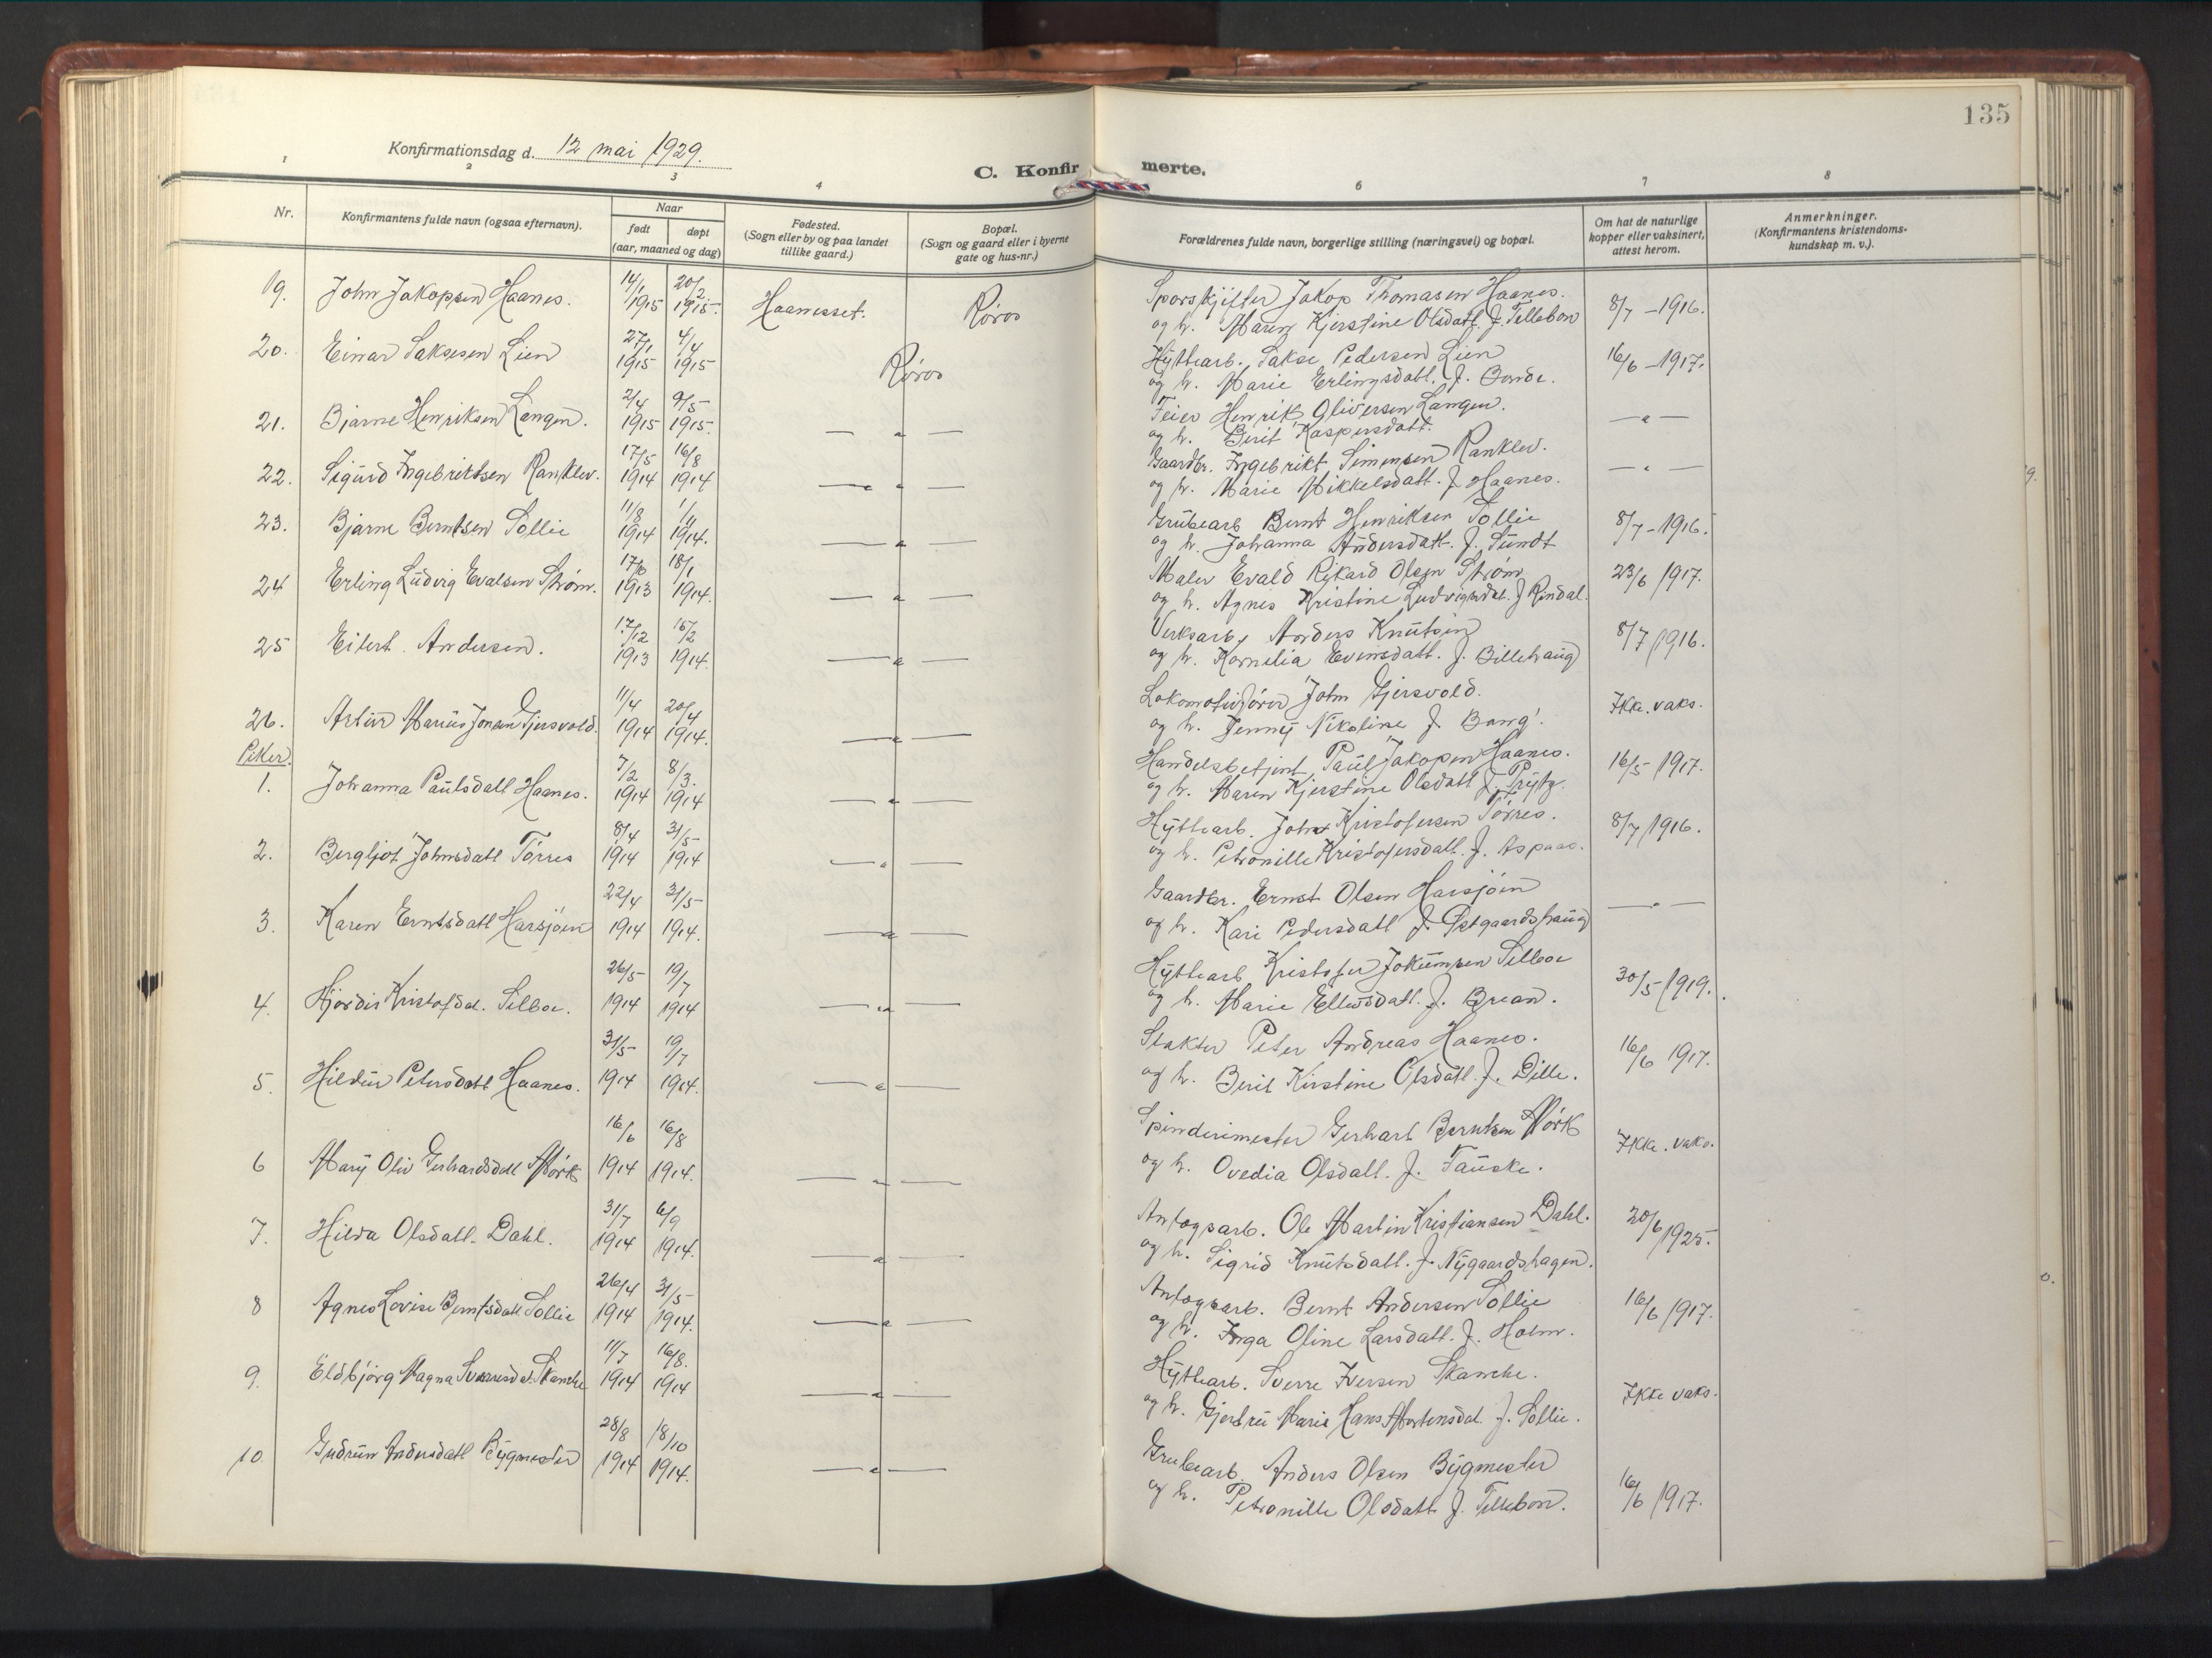 135
Konfirmationsdag d. 12 mai 1929.
C. Konfirmerte.
1 2 3 4 6 7 8
Nr. Konfirmantens fulde navn (ogsaa efternavn). Naar født døpt (aar, maaned og dag) Fødested. (Sogn eller by og paa landet tillike gaard.) Bopæl. (Sogn og gaard eller i byerne gate og hus-nr.) Forældrenes fulde navn, borgerlige stilling (næringsvei) og bopæl. Om hat de naturlige kopper eller vaksinert, attest herom. Anmerkninger. (Konfirmantens kristendomskundskap m. v.).
19. John Jakopsen Haanes. 14/1 1915 20/2 1915. Haanesset. Røros Sporskifter Jakop Thomasen Haanes. 8/7 - 1916.
og h. Maren Kjerstine Olsdatt. f. Tillebon
20. Einar Saksesen Lien 27/1 1915 4/4 1915 Røros Hyttearb. Sakse Pedersen Lien 16/6 - 1917.
og h. Marie Erlingsdatt. f. Borde.
21. Bjarne Henriksen Langen. 2/4 1915 9/5 1915. — " — Feier Henrik Oliversen Langen. — " —
og h. Berit Kaspersdatt.
22. Sigurd Ingebriktsen Ranklev. 17/5 1914 16/8 1914 — " — Gaardbr. Ingebrikt Simensen Ranklev. — " —
og h. Marie Mikkelsdatt. f. Haanes.
23. Bjarne Berntsen Sollie 11/8 1914 1914. — " — Grubearb Bernt Henriksen Sollie 8/7 - 1916.
og h. Johanna Andersdatt. f. Sundt
24 Erling Ludvig Evalsen Strøm. 1913 18/1 1914. — " — Maler Evald Rikard Olsen Strøm 23/6 1917.
og h. Agnes Kristine Ludvigsdat. f. Rindal.
25 Eilert Andersen. 17/12 1913 15/2 1914. — " — Verksarb. Anders Knutsen 8/7 1916.
og h. Kornelia Evensdatt. f. Billehaug
26. Artur Marius Jonsen Gjersvold. 11/4 1914 20/4 1914. — " — Lokomotivfører John Gjersvold. Ikke vaks.
og h. Jenny Nikoline f. Bang.
Piker.
1. Johanna Paulsdatt Haanes. 7/2 1914 8/3. 1914 — " — Handelsbetjent Paul Jakopsen Haanes. 16/5 1917.
og h. Maren Kjerstine Olsdatt f. Prytz.
2. Bergljot Johnsdatt Tørres 8/4 1914 31/5 1914 — " — Hyttearb. John Kristofersen Tørres. 8/7 1916.
og h. Petronille Kristofersdatt. f. Aspaas.
3. Karen Erntsdatt Harsjøen 22/4 1914 31/5 1914. — " — Gaardbr. Ernst Olsen Harsjøen — " —
og h. Kari Pedersdatt f. Østgaardshaug
4. Hjørdis Kristofsdat. Silboe. 26/5 1914 19/7 1914 — " — Hyttearb Kristofer Jokumsen Silboe 30/5 1919.
og h. Marie Ellevsdatt. f. Brean.
5. Hildur Petersdatt Haanes. 31/5 1914 19/7 1914. — " — Slakter Peter Andreas Haanes. 16/6 1917.
og h. Berit Kirstine Olsdatt. f. Dille.
6 Mary Oliv Gerhardsdatt Mørk 16/6 1914 16/8 1914. — " — Spinderimester Gerhart Berntsen Mørk Ikke. vaks.
og h. Ovedia Olsdatt. f. Fauske.
7. Hilda Olsdatt. Dahl. 31/7 1914 6/9 1914. — " — Anlægsarb. Ole Martin Kristiansen Dahl. 20/6 1925.
og h. Sigrid Knutsdatt. f. Nygaardshagen.
8 Agnes Lovise Berntsdatt Sollie 26/4 1914 31/5 1914. — " — Anlægsarb. Bernt Andersen Sollie 16/6 1917.
og h. Inga Oline Larsdatt. f. Holm.
9. Eldbjørg Magna Sverresdat. Skanche 11/7 1914 16/8. 1914 — " — Hyttearb. Sverre Iversen Skanche. Ikke vaks.
og h. Gjertru Marie Hans Mortensdat. f. Sollie.
10. Gudrun Andersdatt Bygmester 28/8 1914 18/10 1914. — " — Grubearb. Anders Olsen Bygmester 16/6 1917.
og h. Petronille Olsdatt f. Tillebon.